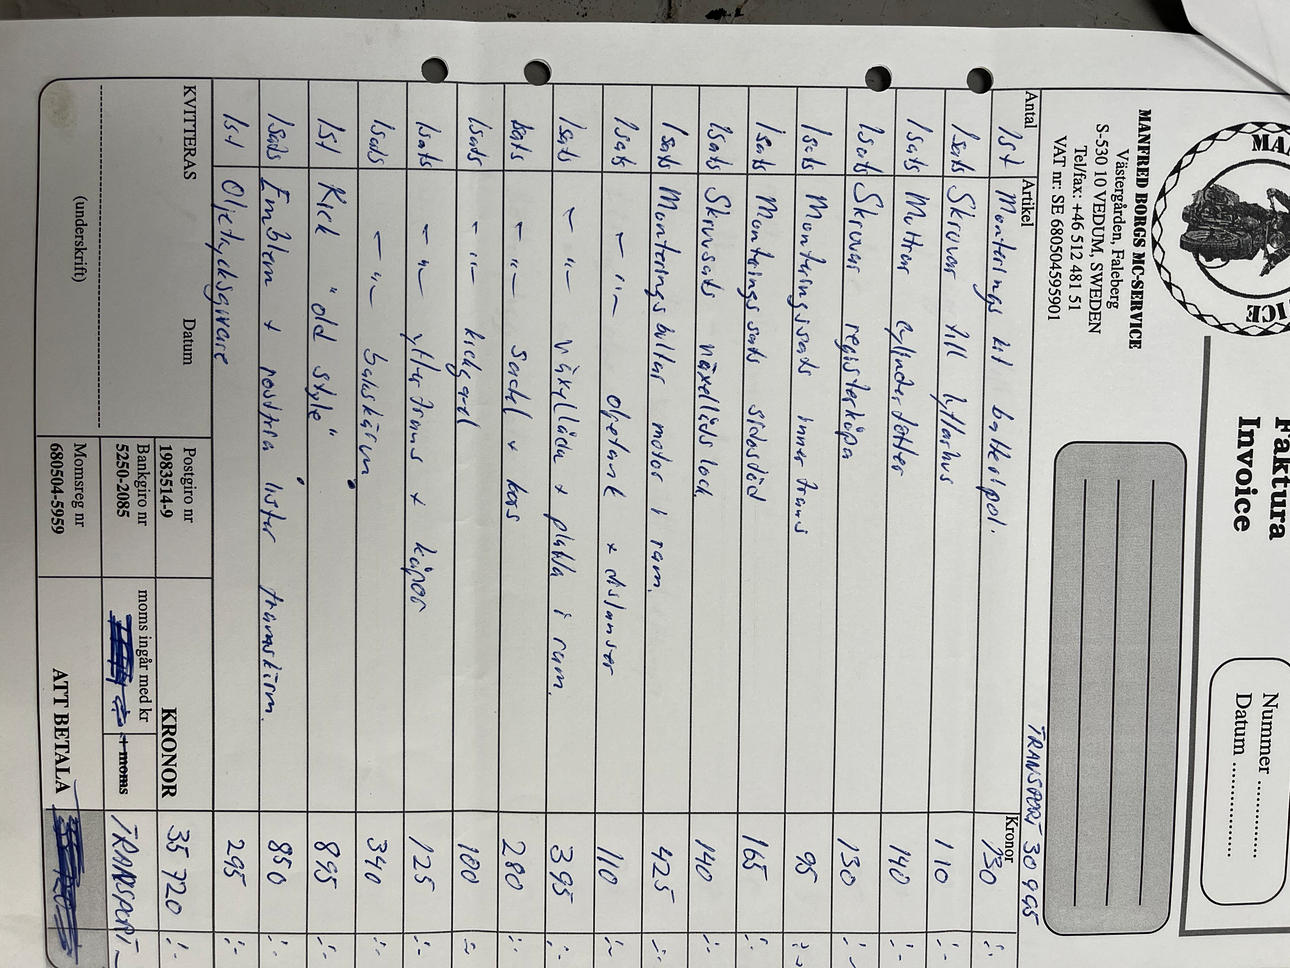 Faktura
Invoice
Nummer ..............
Datum ..............
MANFRED BORGS MC-SERVICE
Västergården, Faleberg
S-530 10 VEDUM, SWEDEN
Tel/fax: +46 512 481 51
VAT nr: SE 680504595901
TRANSPORT 30 995
Antal Artikel Kronor
1st Monterings kit batteripol. 130 :-
1sats Skruvar till lyftarhus 110 :-
1sats Muttrar cylinderfötter 140 :-
1sats Skruvar registerkåpa 130 :-
1sats Monteringssats innertrans 95 :-
1sats Monteringssats sidostöd 165 :-
1sats Skruvsats växellådslock 140 :-
1sats Monteringsbultar motor i ram. 425 :-
1sats — " — oljetank + distanser 110 :-
1sats — " — växellåda + platta i ram. 395 :-
1sats — " — sadel + bars 280 :-
1sats — " — kickgard 100 :-
1sats — " — yttertrans + kåpor 125 :-
1sats — " — bakskärm 340 :-
1st Kick "old style" 895 :-
1sats Emblem + rostfria lister framskärm. 850 :-
1st Oljetrycksgivare 295 :-
KVITTERAS Datum
(underskrift)
Postgiro nr
1983514-9
Bankgiro nr
5250-2085
Momsreg nr
680504-5959
KRONOR 35 720 :-
moms ingår med kr
+ moms
TRANSPORT
ATT BETALA